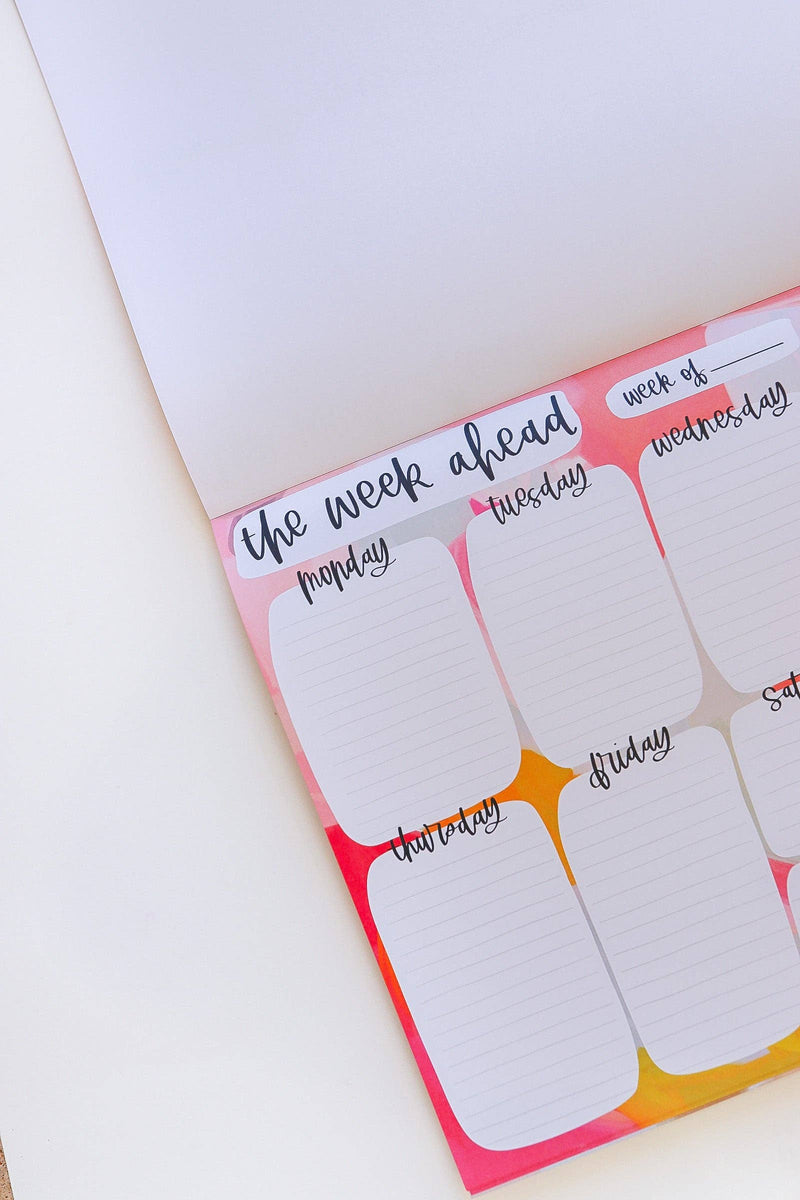 the week ahead
week of
monday
tuesday
wednesday
thursday
friday
sat